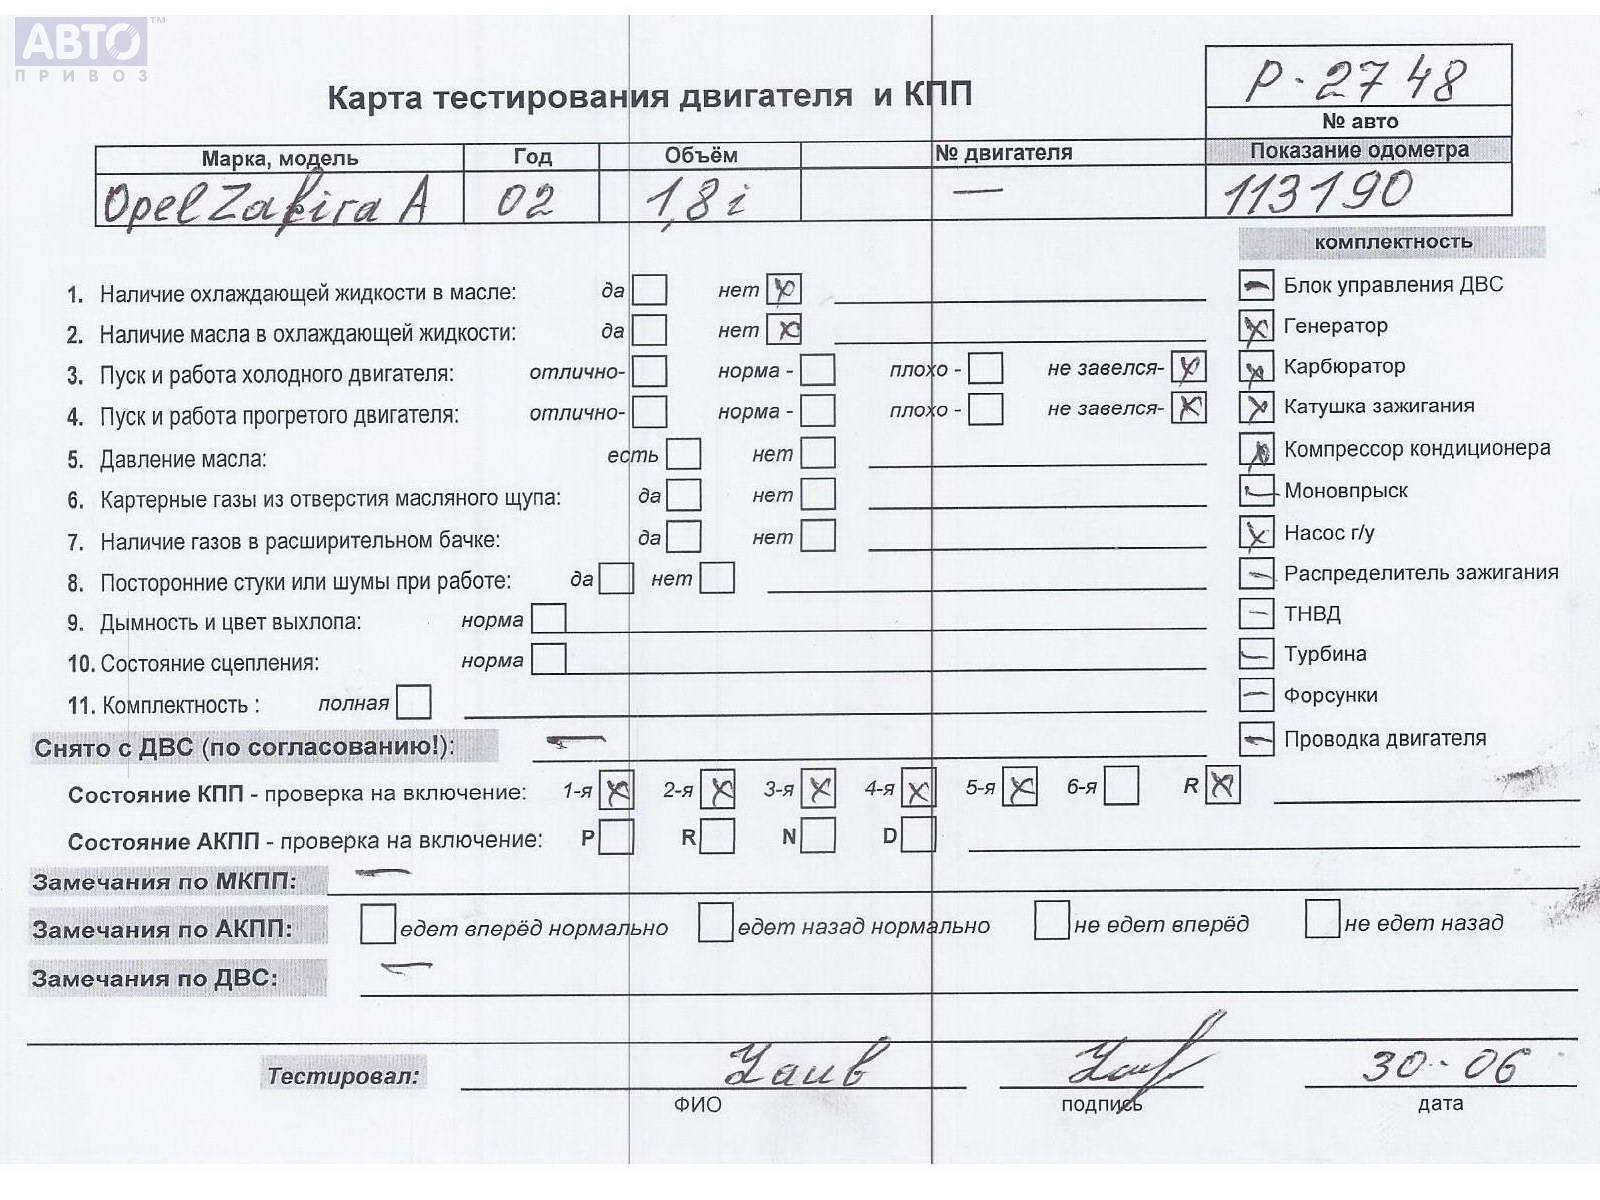 АВТО™
ПРИВОЗ
Карта тестирования двигателя и КПП
P-2748
№ авто
Марка, модель Год Объём № двигателя Показание одометра
Opel Zafira A 02 1,8i — 113190
комплектность
1. Наличие охлаждающей жидкости в масле: да нет x
Блок управления ДВС
2. Наличие масла в охлаждающей жидкости: да нет x
Генератор
3. Пуск и работа холодного двигателя: отлично- норма - плохо - не завелся- x
Карбюратор
4. Пуск и работа прогретого двигателя: отлично- норма - плохо - не завелся- x
Катушка зажигания
5. Давление масла: есть нет
Компрессор кондиционера
6. Картерные газы из отверстия масляного щупа: да нет
Моновпрыск
7. Наличие газов в расширительном бачке: да нет
Насос г/у
8. Посторонние стуки или шумы при работе: да нет
Распределитель зажигания
9. Дымность и цвет выхлопа: норма
ТНВД
10. Состояние сцепления: норма
Турбина
11. Комплектность : полная
Форсунки
Снято с ДВС (по согласованию!): —
Проводка двигателя
Состояние КПП - проверка на включение: 1-я x 2-я x 3-я x 4-я x 5-я x 6-я R x
Состояние АКПП - проверка на включение: P R N D
Замечания по МКПП: —
Замечания по АКПП: едет вперёд нормально едет назад нормально не едет вперёд не едет назад
Замечания по ДВС: —
Тестировал: 30-06
ФИО подпись дата